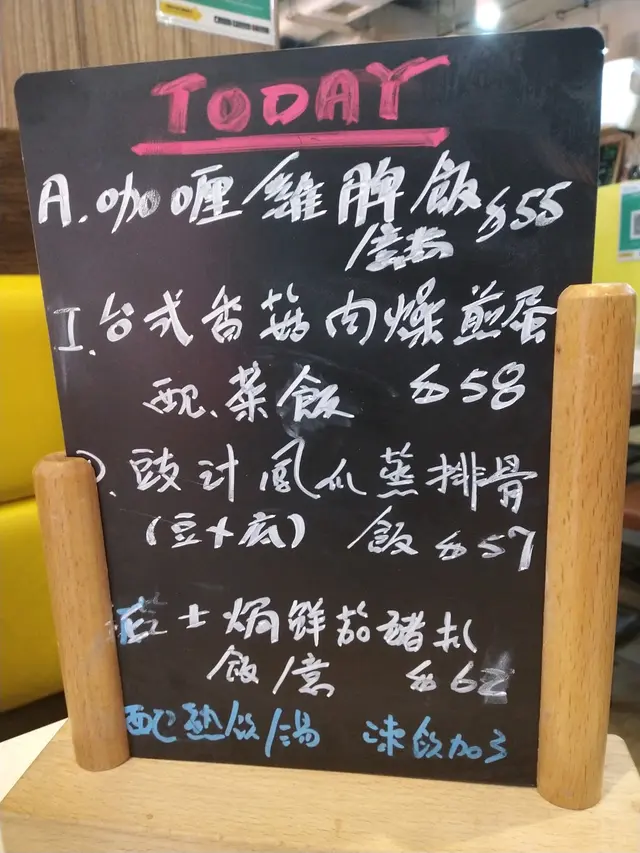 TODAY
A. 咖喱雞脾飯 $55
I. 台式香菇肉燥煎蛋
配菜飯 $58
豉汁鳳爪蒸排骨
(豆卜底) 飯 $57
芝士焗鮮茄豬扒
飯/意 $62
配熱飲/湯 凍飲加3